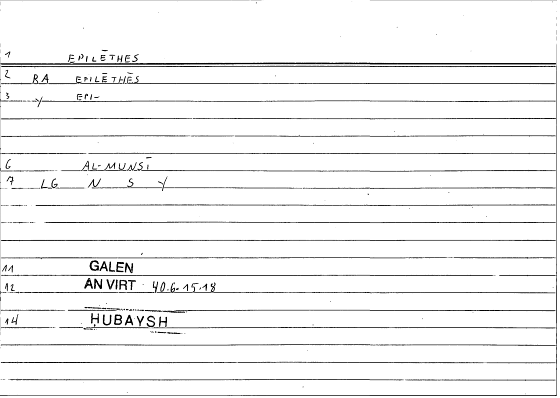 1 EPILĒTHES
2 RA EPILĒTHĒS
3 Y EPI-
6 AL-MUNSĪ
7 LG N S Y
11 GALEN
12 AN VIRT 40.6.15.18
14 ḤUBAYSH